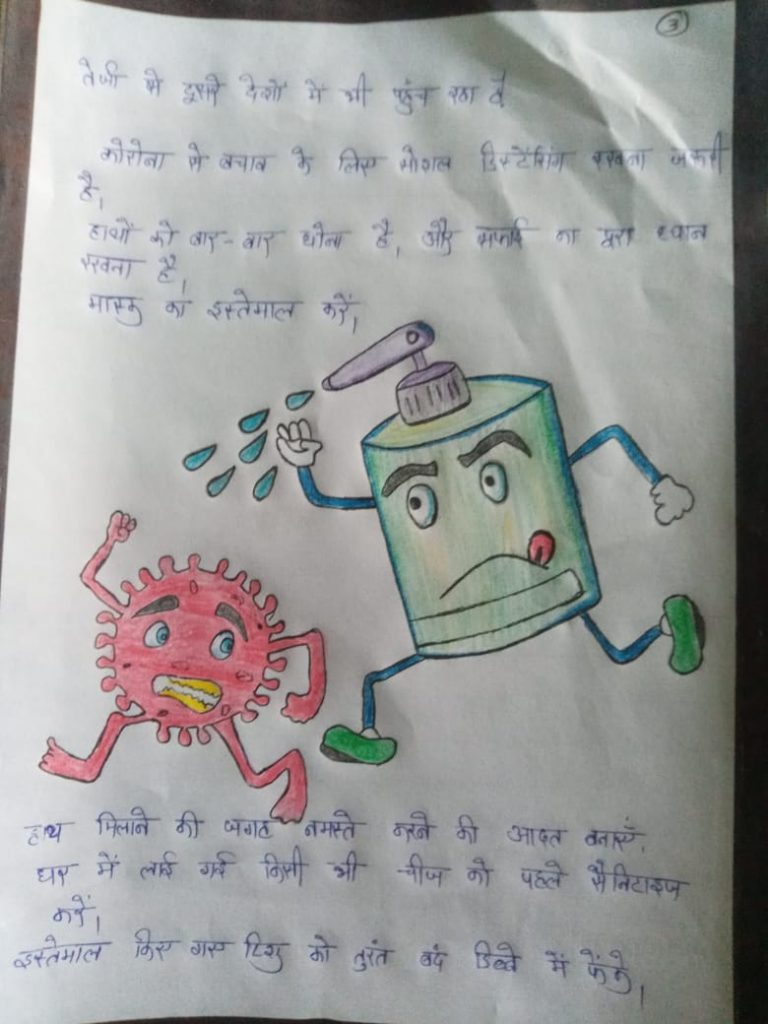 3
तेजी से दूसरे देशों में भी पहुंच रहा है
कोरोना से बचाव के लिए सोशल डिस्टेंसिंग रखना जरूरी
है।
हाथों को बार-बार धोना है, और सफाई का पूरा ध्यान
रखना है।
मास्क का इस्तेमाल करें।
हाथ मिलाने की जगह नमस्ते करने की आदत बनाएँ.
घर में लाई गई किसी भी चीज को पहले सैनिटाइज
करें।
इस्तेमाल किए गए टिशु को तुरंत बंद डिब्बे में फेंके।